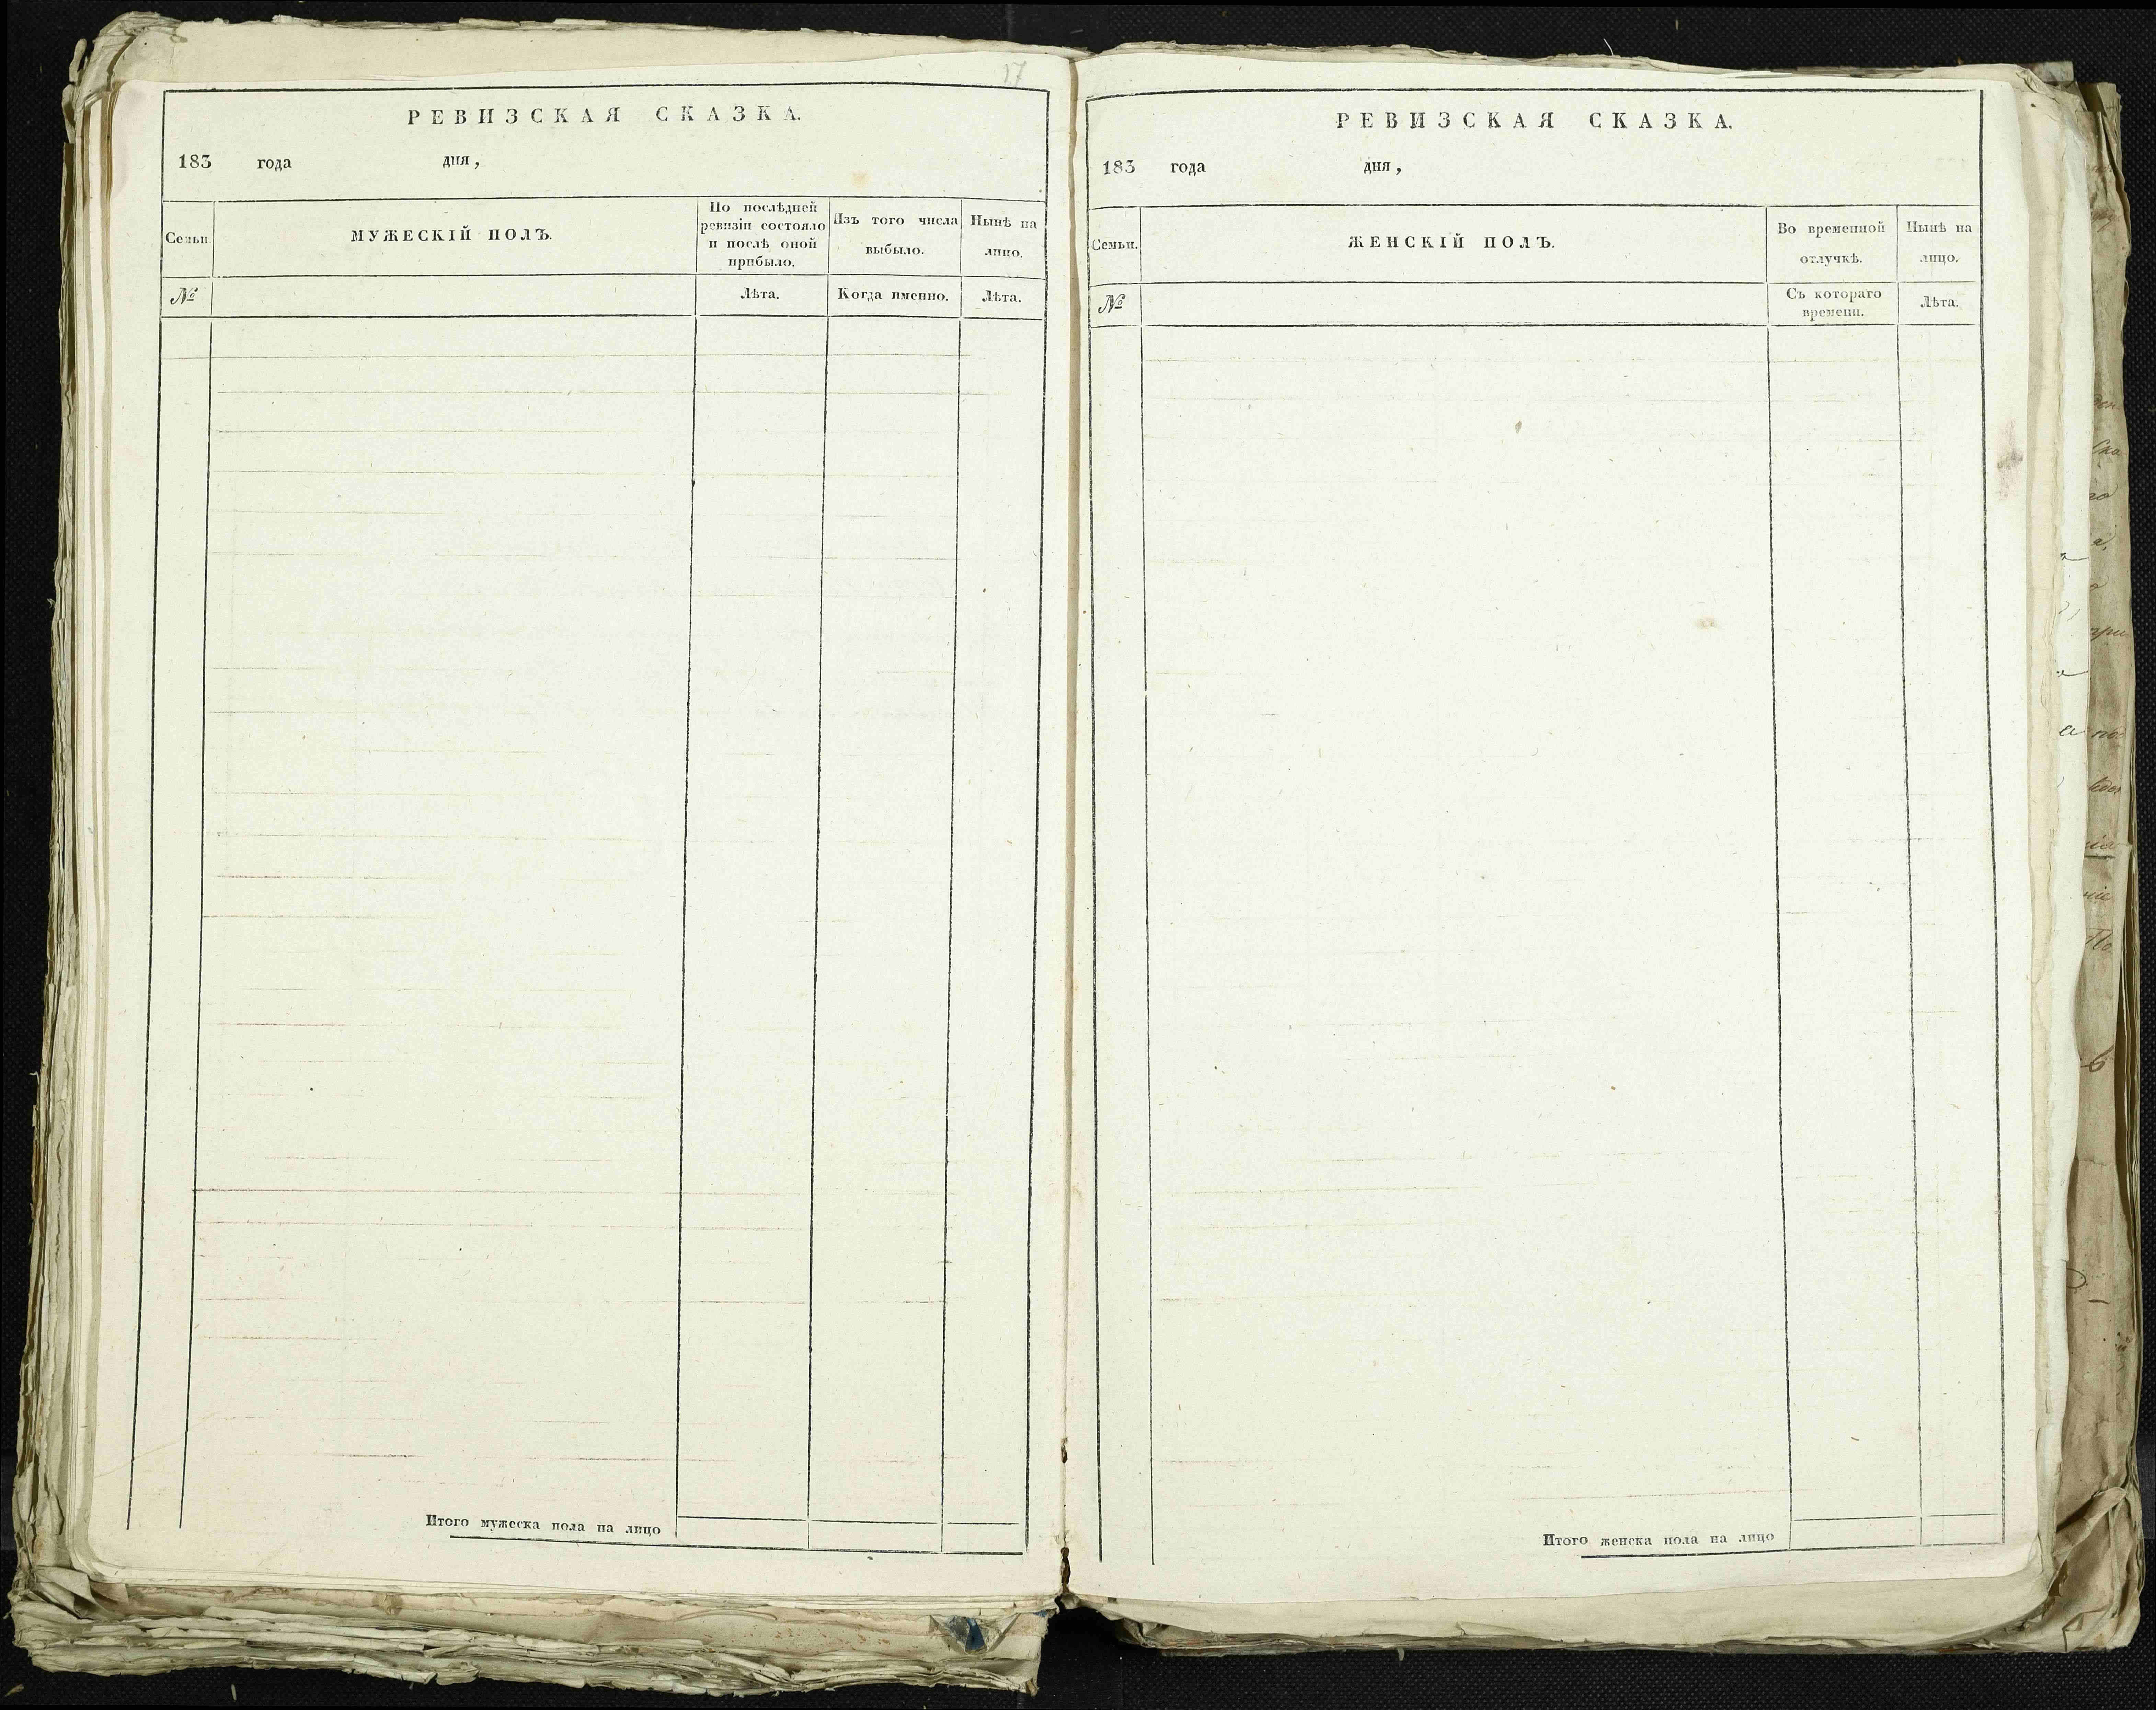 17
РЕВИЗСКАЯ СКАЗКА.
183 года дня,
Семьи.
МУЖЕСКІЙ ПОЛЪ.
По послѣдней
ревизіи состояло
и послѣ оной
прибыло.
Изъ того числа
выбыло.
Нынѣ на
лицо.
№
Лѣта.
Когда именно.
Лѣта.
Итого мужеска пола на лицо
РЕВИЗСКАЯ СКАЗКА.
183 года дня,
Семьи.
ЖЕНСКІЙ ПОЛЪ.
Во временной
отлучкѣ.
Нынѣ на
лицо.
№
Съ котораго
времени.
Лѣта.
Итого женска пола на лицо